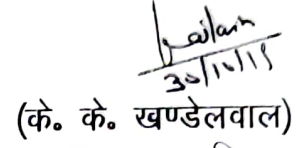 30/10/19
(के० के० खण्डेलवाल)